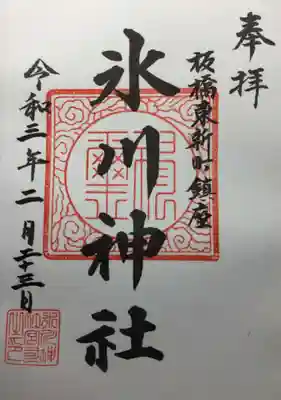 奉拝
板橋東新町鎮座
氷川神社
令和三年二月二十三日